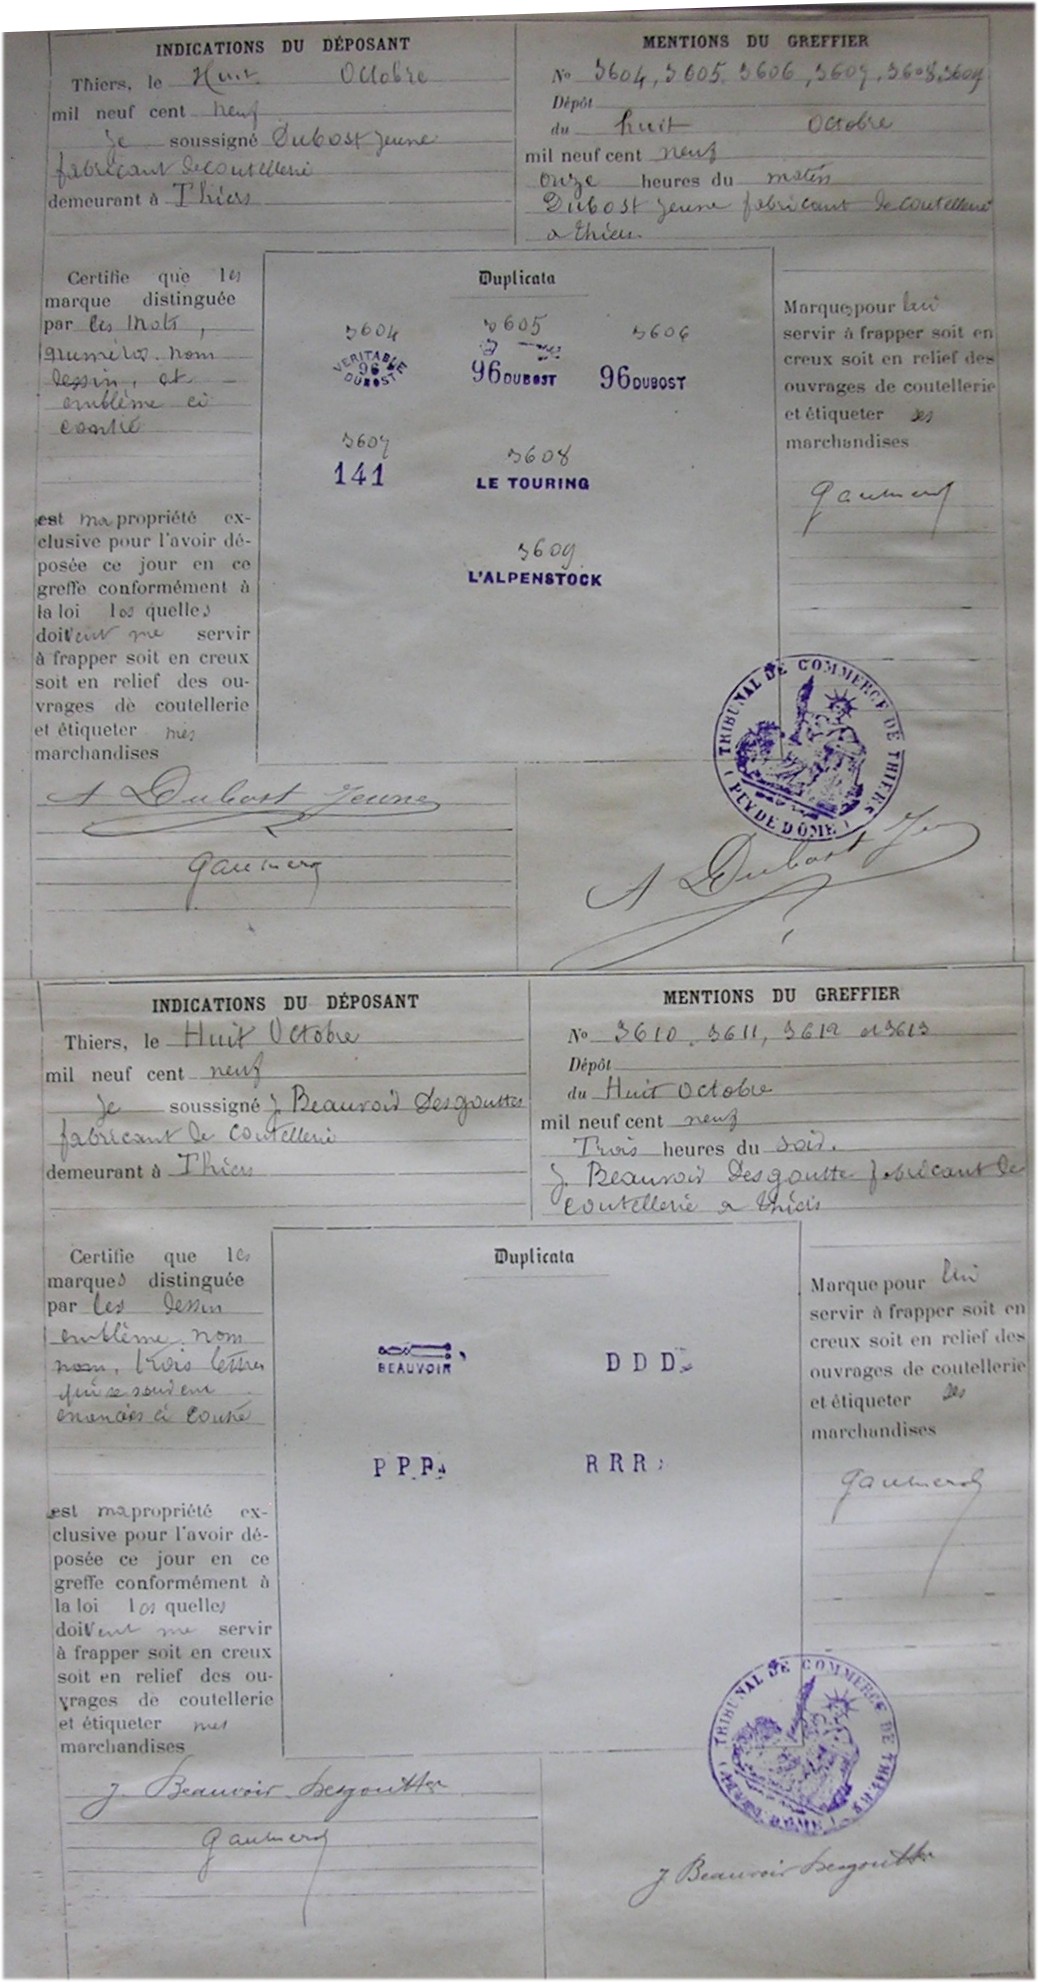 INDICATIONS DU DÉPOSANT
Thiers, le Huit Octobre
mil neuf cent neuf
Je soussigné Dubost Jeune
fabricant de coutellerie
demeurant à Thiers
MENTIONS DU GREFFIER
No 3604, 3605, 3606, 3607, 3608, 3609
Dépôt
du huit Octobre
mil neuf cent neuf
onze heures du matin
Dubost Jeune fabricant de coutellerie
a thiers
Certifie que les
marque distinguée
par les mots,
numéros, nom
dessin, et
emblème ci
contre
est ma propriété ex-
clusive pour l'avoir dé-
posée ce jour en ce
greffe conformément à
la loi les quelles
doivent me servir
à frapper soit en creux
soit en relief des ou-
vrages de coutellerie
et étiqueter mes
marchandises
Duplicata
3604 3605 3606
VERITABLE
96
DUBOST
96 DUBOST
96 DUBOST
3607
141
3608
LE TOURING
3609
L'ALPENSTOCK
Marques pour lui
servir à frapper soit en
creux soit en relief des
ouvrages de coutellerie
et étiqueter ses
marchandises
TRIBUNAL DE COMMERCE DE THIERS
(PUY DE DÔME)
A Dubost Jeune
A Dubost Je
INDICATIONS DU DÉPOSANT
Thiers, le Huit Octobre
mil neuf cent neuf
Je soussigné J. Beauvoir Desgouttes
fabricant de coutellerie
demeurant à Thiers
MENTIONS DU GREFFIER
No 3610, 3611, 3612 et 3613
Dépôt
du Huit Octobre
mil neuf cent neuf
Trois heures du soir.
J. Beauvoir Desgoutte fabricant de
coutellerie a thiers
Certifie que les
marques distinguée
par les dessin
emblème, nom
nom, trois lettres
ci contre
est ma propriété ex-
clusive pour l'avoir dé-
posée ce jour en ce
greffe conformément à
la loi les quelles
doivent me servir
à frapper soit en creux
soit en relief des ou-
vrages de coutellerie
et étiqueter mes
marchandises
Duplicata
BEAUVOIR
D D D
P P P
R R R
Marque pour lui
servir à frapper soit en
creux soit en relief des
ouvrages de coutellerie
et étiqueter ses
marchandises
TRIBUNAL DE COMMERCE DE THIERS
(PUY DE DÔME)
J. Beauvoir Desgouttes
J Beauvoir Desgouttes